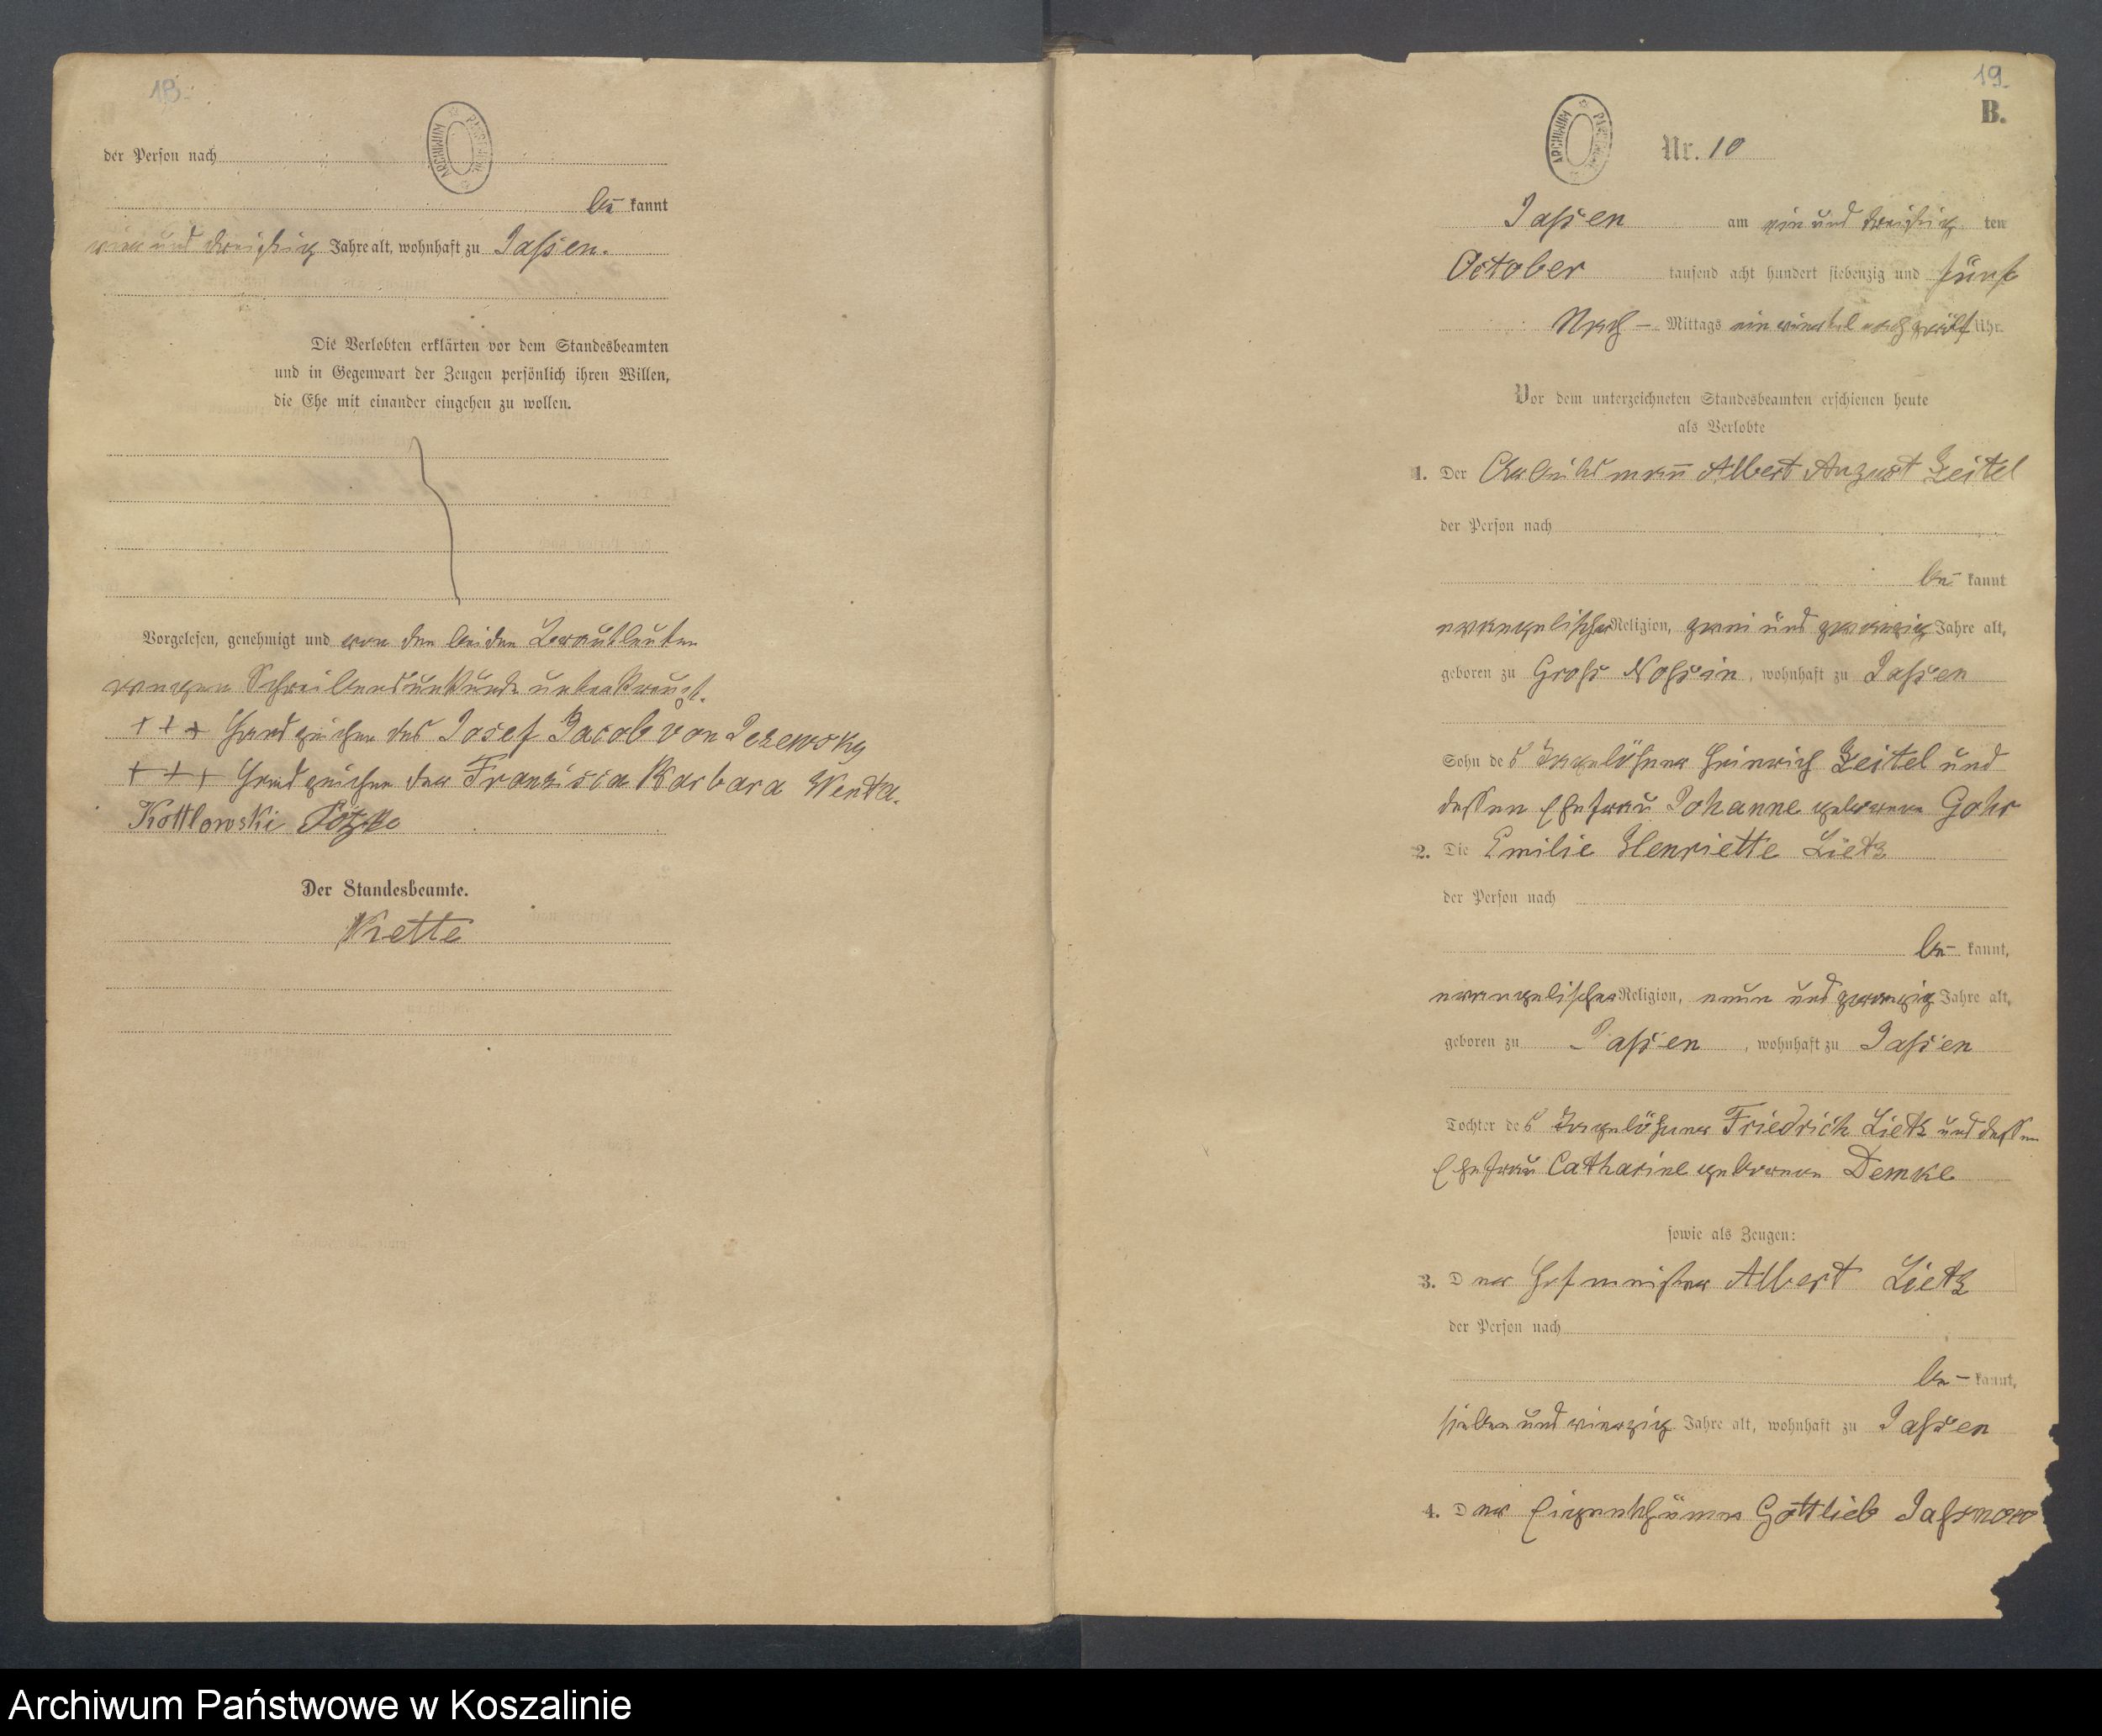 18.
ARCHIWUM PAŃSTWOWE
der Person nach
be kannt
vier und dreißig Jahre alt, wohnhaft zu Jaßen.
Die Verlobten erklärten vor dem Standesbeamten
und in Gegenwart der Zeugen persönlich ihren Willen,
die Ehe mit einander eingehen zu wollen.
Vorgelesen, genehmigt und von den beiden Brautleuten
wegen Schreibensunkunde unterkreuzt.
+++ Handzeichen des Josef Jacob von Jezewsky
+++ Handzeichen der Franzisca Barbara Wenta.
Kottlowski
Der Standesbeamte.
Kette
19.
B.
ARCHIWUM PAŃSTWOWE
Nr. 10
Jaßen am ein und dreißig ten
October tausend acht hundert siebenzig und fünf
Nach- Mittags ein viertel nach zwölf Uhr.
Vor dem unterzeichneten Standesbeamten erschienen heute
als Verlobte
1. Der Arbeitsmann Albert August Zeitel
der Person nach
be- kannt
evangelischer Religion, zwei und zwanzig Jahre alt,
geboren zu Groß Noßin, wohnhaft zu Jaßen
Sohn des Tagelöhner Heinrich Zeitel und
dessen Ehefrau Johanne geborene Gohr
2. Die Emilie Henriette Lietz
der Person nach
be- kannt,
evangelischer Religion, neun und zwanzig Jahre alt,
geboren zu Jaßen, wohnhaft zu Jaßen
Tochter des Tagelöhner Friedrich Lietz und dessen
Ehefrau Catharine geborene Demke
sowie als Zeugen:
3. Der Hofmeister Albert Lietz
der Person nach
be- kannt,
sieben und vierzig Jahre alt, wohnhaft zu Jaßen
4. Der Eigenthümer Gottlieb Jaßnow
Archiwum Państwowe w Koszalinie